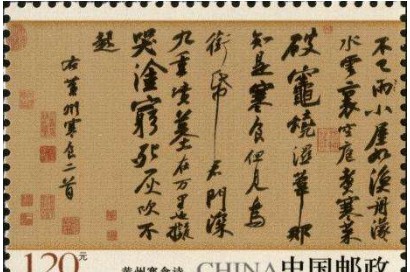 不已雨小屋如漁舟濛
水雲裏空庖煮寒菜
破竈燒濕葦那
知是寒食但見烏
銜帋君門深
九重墳墓在万里也擬
哭塗窮死灰吹不
起
右黃州寒食二首
120元 黄州寒食诗 CHINA中国邮政